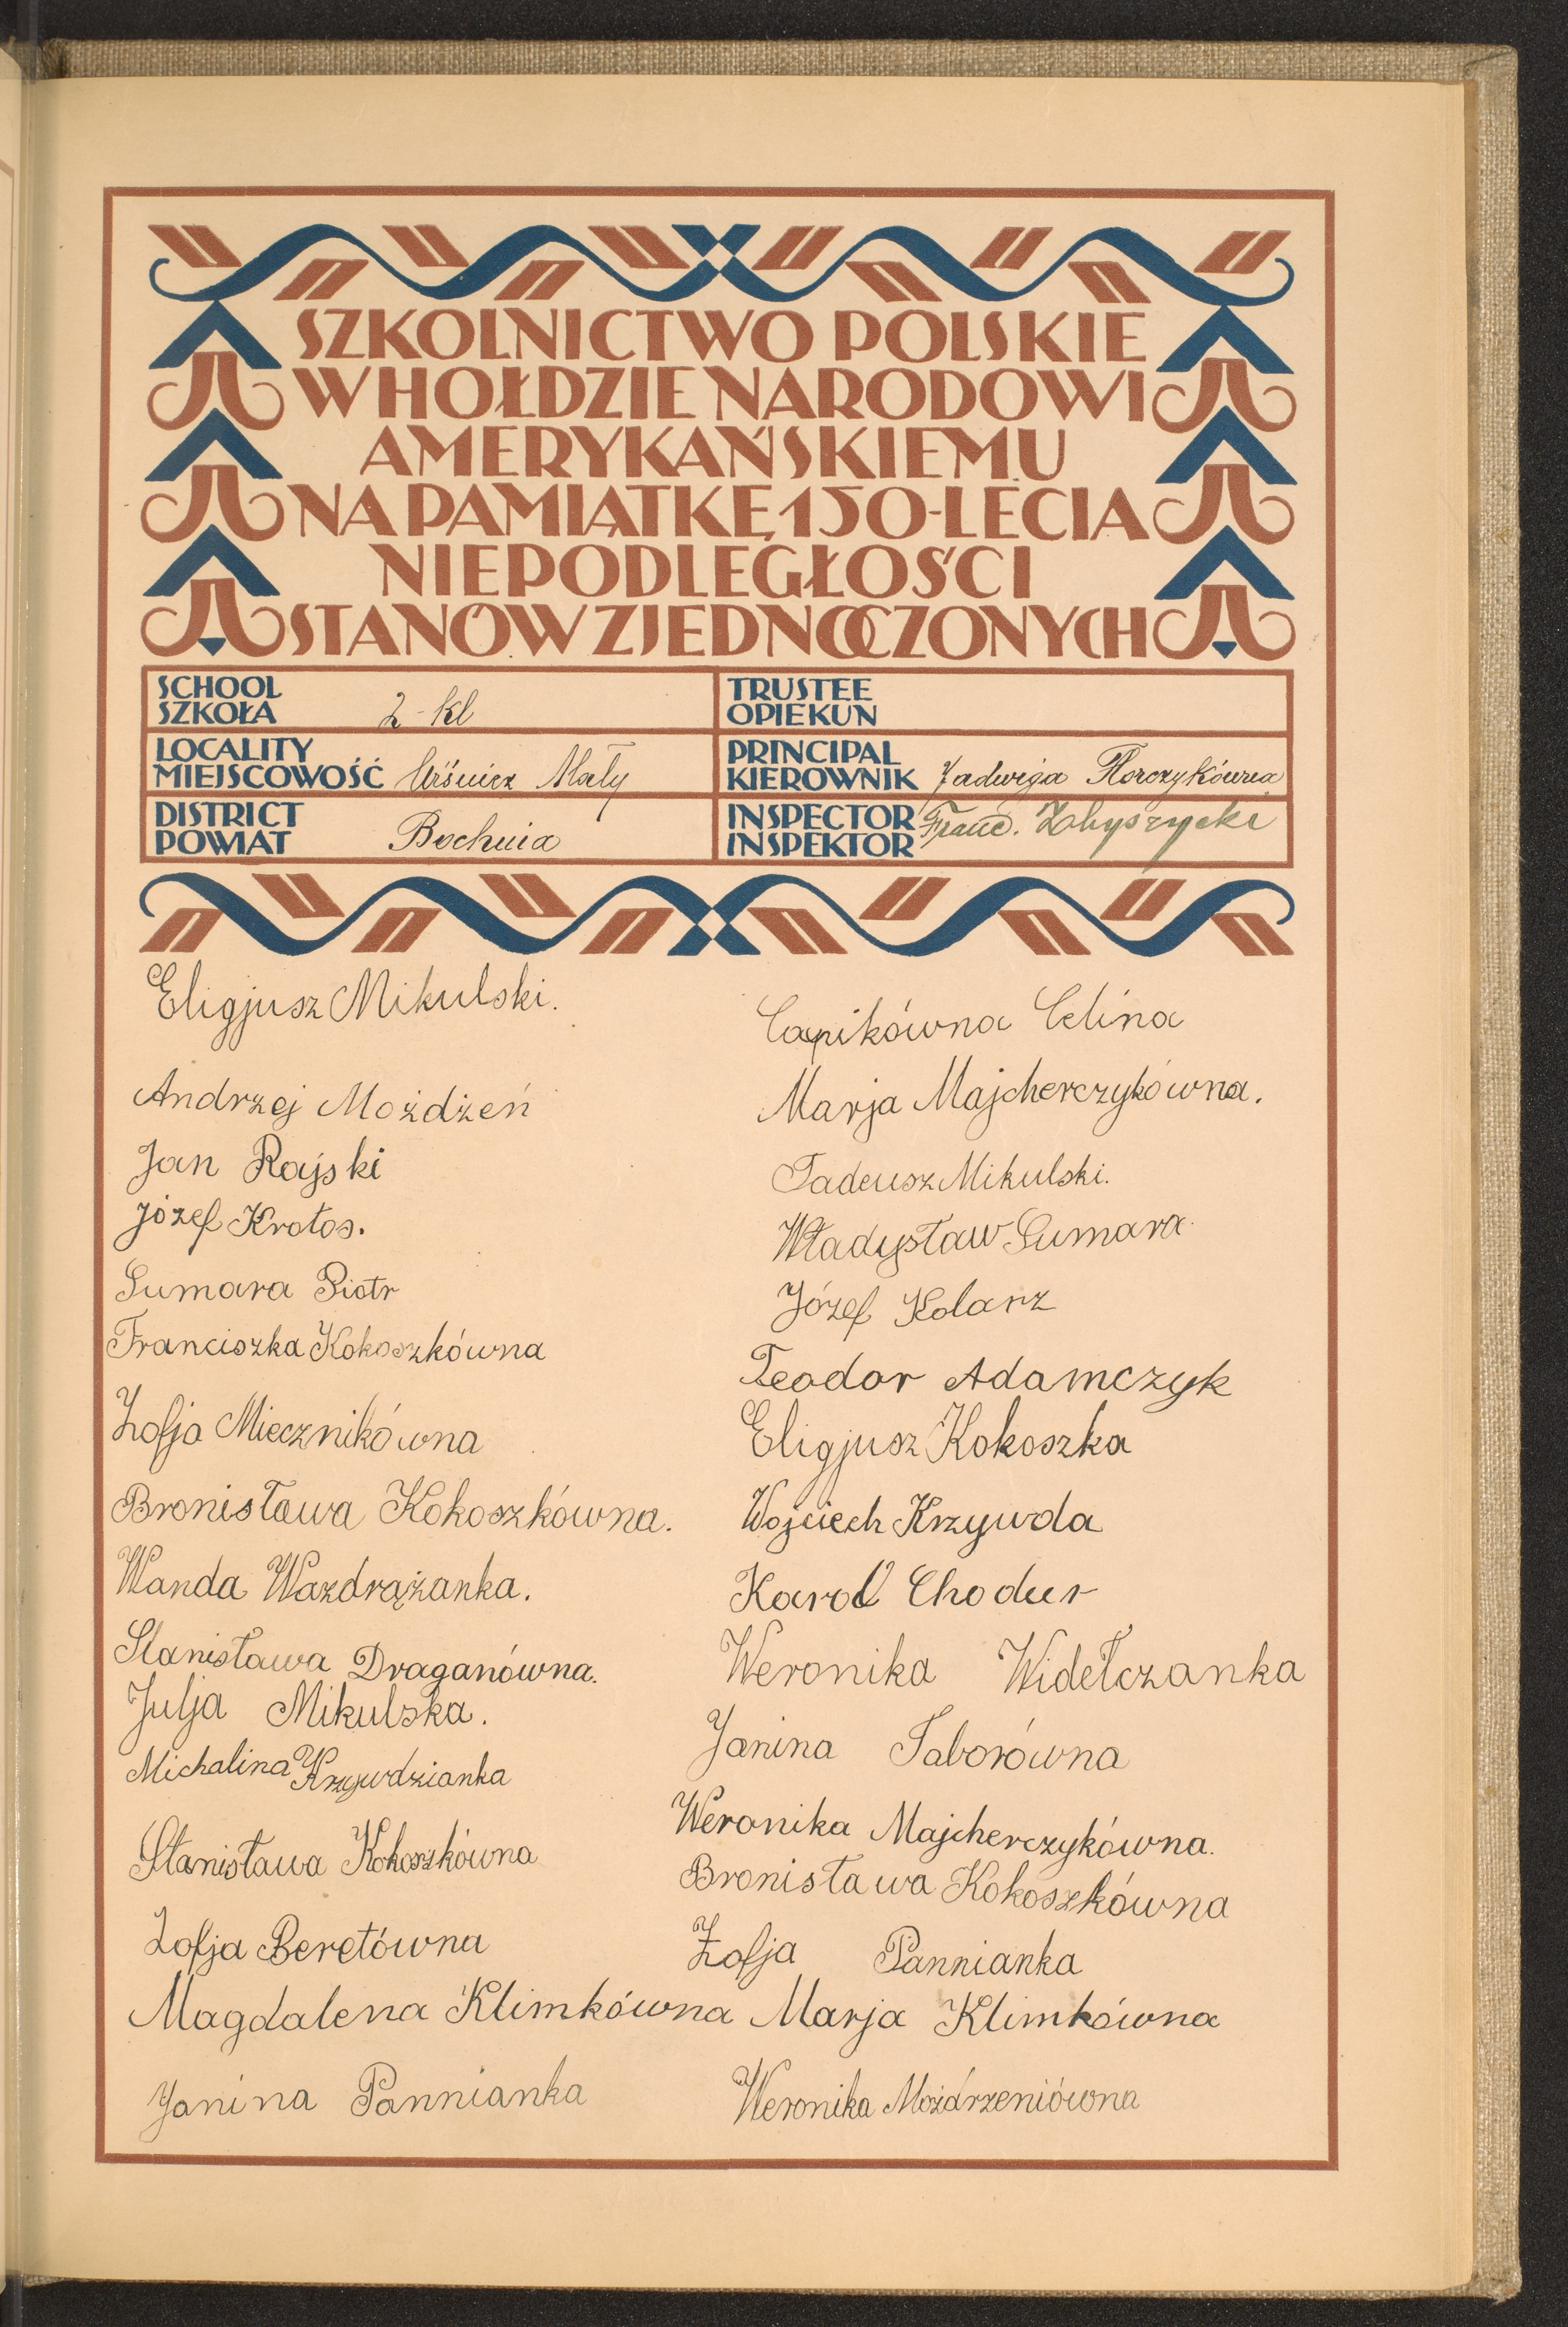 SZKOLNICTWO POLSKIE
W HOŁDZIE NARODOWI
AMERYKAŃSKIEMU
NA PAMIĄTKĘ 150-LECIA
NIEPODLEGŁOŚCI
STANÓW ZJEDNOCZONYCH
SCHOOL
SZKOŁA 2-kl
TRUSTEE
OPIEKUN
LOCALITY
MIEJSCOWOŚĆ Uiśnicz Mały
PRINCIPAL
KIEROWNIK Jadwiga Florczykówna
DISTRICT
POWIAT Bochnia
INSPECTOR
INSPEKTOR Franc.
Eligjusz Mikulski.
Andrzej Możdżeń
Jan Rajski
Józef Krotos.
Sumara Piotr
Franciszka Kokoszkówna
Zofja Miecznikówna
Bronisława Kokoszkówna.
Wanda Wazdrążanka.
Stanisława Draganówna.
Julja Mikulska.
Michalina Krzywdzianka
Stanisława Kokoszkówna
Zofja Beretówna
Magdalena Klimkówna
Janina Pannianka
Capikówna Celina
Marja Majcherczykówna.
Tadeusz Mikulski.
Władysław Sumara
Józef Kolarz
Teodor Adamczyk
Eligjusz Kokoszka
Wojciech Krzywda
Karol Chodur
Weronika Widełczanka
Janina Taborówna
Weronika Majcherczykówna.
Bronisława Kokoszkówna
Zofja Pannianka
Marja Klimkówna
Weronika Możdrzeniówna